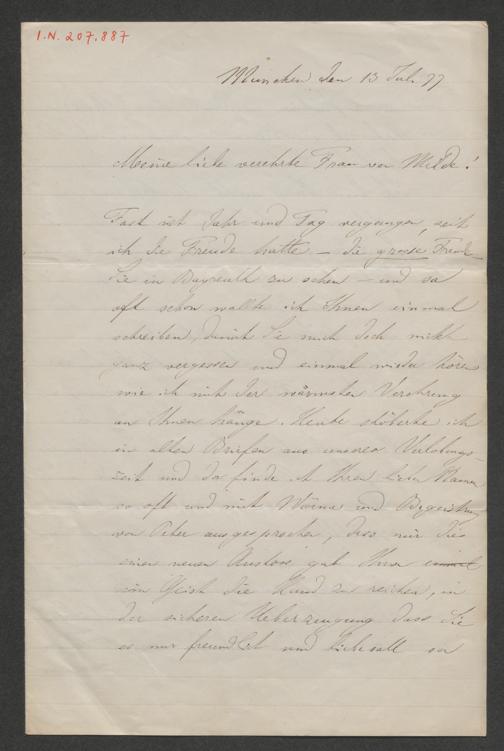 I.N. 207.887
München den 13 Juli 77
Meine liebe verehrte Frau von Milde!
Fast ist Jahr und Tag vergangen, seit
ich die Freude hatte – die grosse Freude
Sie in Bayreuth zu sehen – und so
oft schon wollte ich Ihnen einmal
schreiben, damit Sie mich doch nicht
ganz vergessen und einmal wieder hören
wie ich mit der wärmsten Verehrung
an Ihnen hänge. Heute stöberte ich
in alten Briefen aus unserer Verlobungs-
zeit und da finde ich Ihren lieben Namen
so oft und mit Wärme und Begeistrung
von Peter ausgesprochen, dass mir dies
einen neuen Anstoss gab Ihnen einmal
im Geist die Hand zu reichen, in
der sicheren Ueberzeugung dass Sie
es mir freundlich und liebevoll so